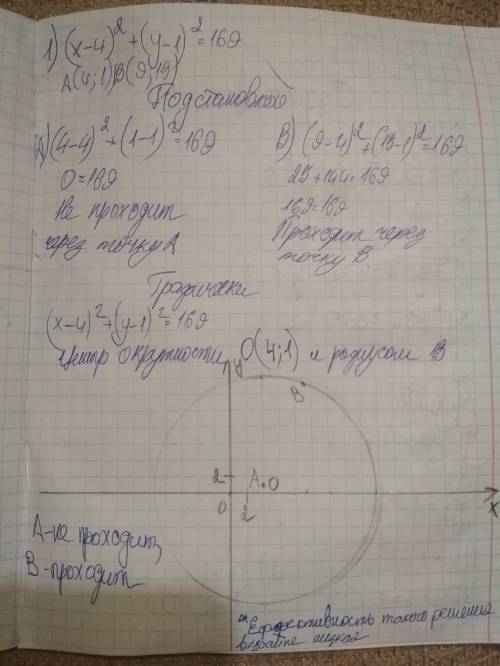 1) (x-4)² + (y-1)² = 169
A(4;1) B(9;13)
Подстановкой
A) (4-4)² + (1-1)² = 169
0 = 169
Не проходит
через точку A
B) (9-4)² + (13-1)² = 169
25 + 144 = 169
169 = 169
Проходит через
точку B
Графически
(x-4)² + (y-1)² = 169
Центр окружности O(4;1) и радиусом 13
y
B
2
A O
0
2
x
A-не проходит,
B-проходит
Еффективность такого решения
крайне низкая